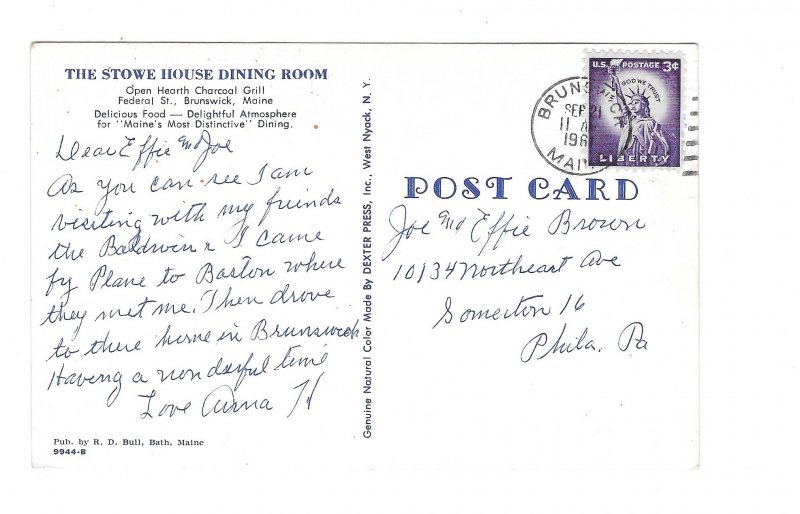 THE STOWE HOUSE DINING ROOM
Open Hearth Charcoal Grill
Federal St., Brunswick, Maine
Delicious Food — Delightful Atmosphere
for "Maine's Most Distinctive" Dining.
Dear Effie and Joe
As you can see I am
visiting with my friends
the Baldwins I came
by Plane to Boston where
they met me. Then drove
to there home in Brunswick
Having a wonderful time
Love Anna H
Pub. by R. D. Bull, Bath, Maine
9944-B
Genuine Natural Color Made By DEXTER PRESS, Inc., West Nyack, N. Y.
U.S. POSTAGE 3¢
IN GOD WE TRUST
LIBERTY
BRUNSWICK
SEP 21
11 A
196
MAINE
POST CARD
Joe and Effie Brown
10134 Northeast Ave
Somerton 16
Phila. Pa